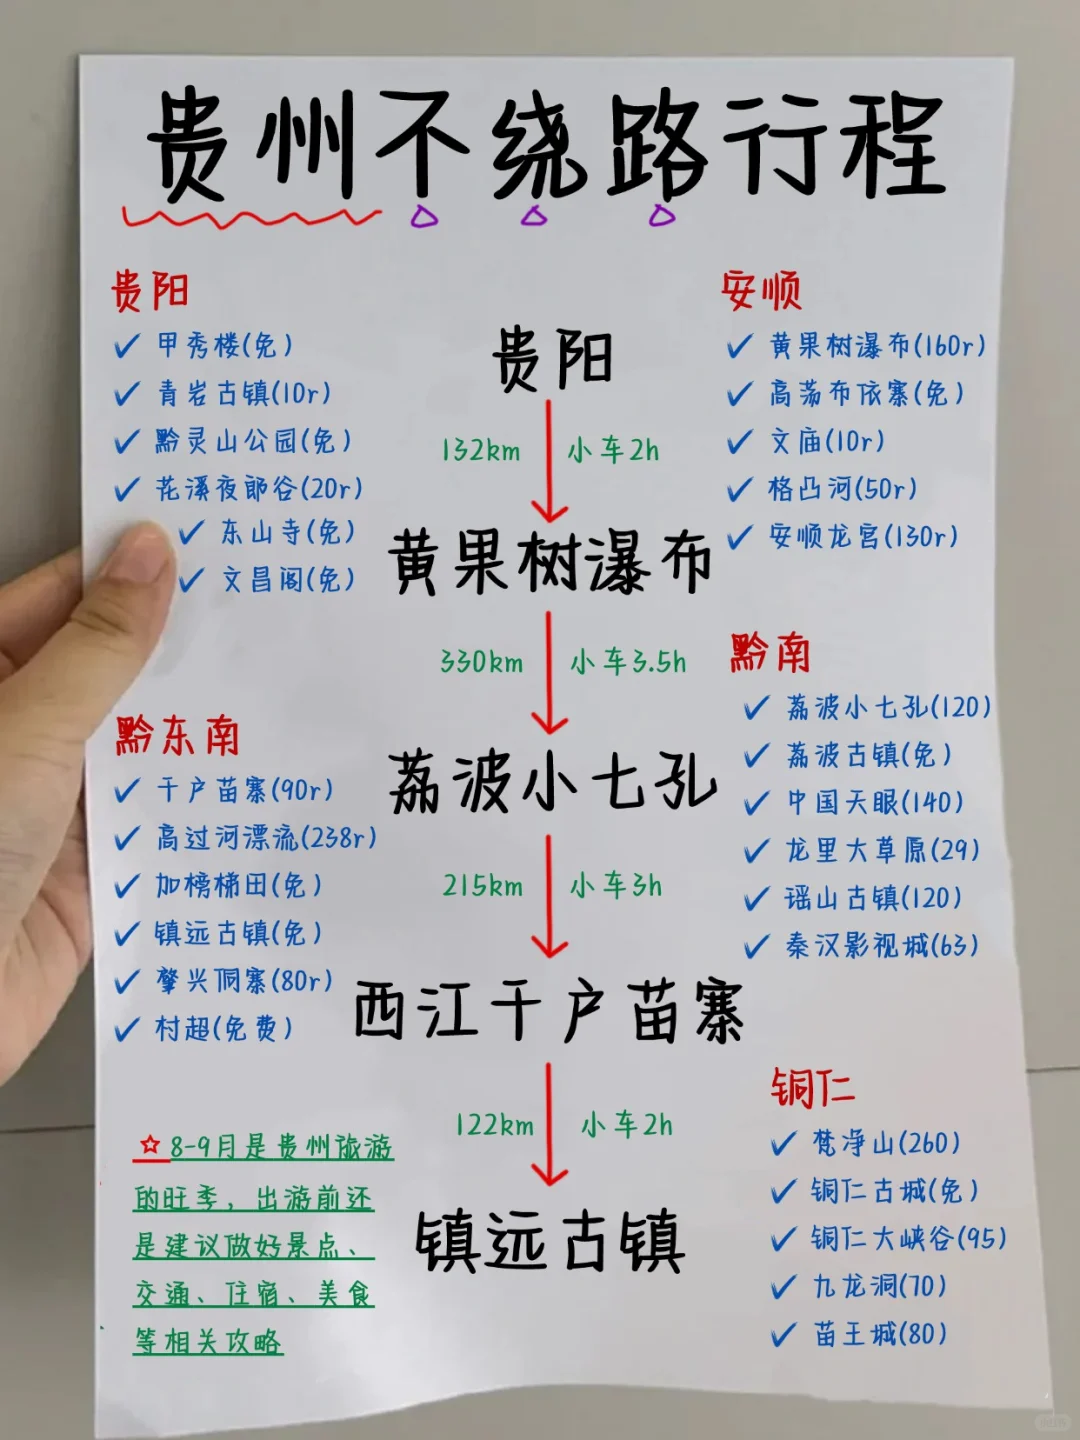 贵州不绕路行程
贵阳
✓ 甲秀楼(免)
✓ 青岩古镇(10r)
✓ 黔灵山公园(免)
✓ 花溪夜郎谷(20r)
✓ 东山寺(免)
✓ 文昌阁(免)
安顺
✓ 黄果树瀑布(160r)
✓ 高荡布依寨(免)
✓ 文庙(10r)
✓ 格凸河(50r)
✓ 安顺龙宫(130r)
贵阳
132km 小车2h
黄果树瀑布
330km 小车3.5h
荔波小七孔
215km 小车3h
西江千户苗寨
122km 小车2h
镇远古镇
黔南
✓ 荔波小七孔(120)
✓ 荔波古镇(免)
✓ 中国天眼(140)
✓ 龙里大草原(29)
✓ 瑶山古镇(120)
✓ 秦汉影视城(63)
黔东南
✓ 千户苗寨(90r)
✓ 高过河漂流(238r)
✓ 加榜梯田(免)
✓ 镇远古镇(免)
✓ 肇兴侗寨(80r)
✓ 村超(免费)
铜仁
✓ 梵净山(260)
✓ 铜仁古城(免)
✓ 铜仁大峡谷(95)
✓ 九龙洞(70)
✓ 苗王城(80)
☆ 8-9月是贵州旅游
的旺季，出游前还
是建议做好景点、
交通、住宿、美食
等相关攻略